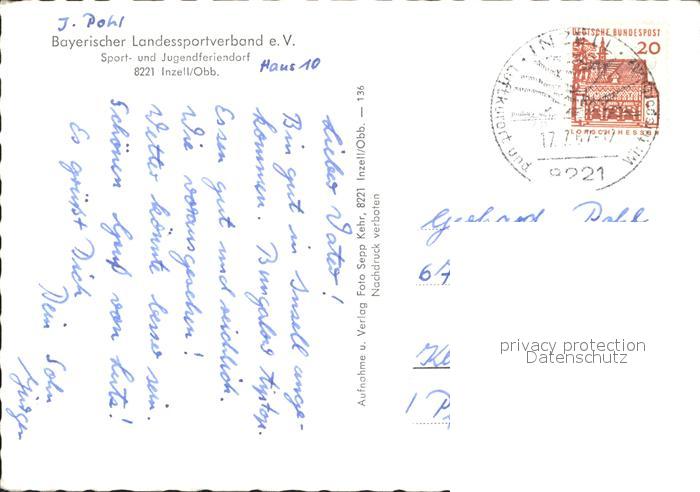 J. Pohl
Bayerischer Landessportverband e. V.
Sport- und Jugendferiendorf
8221 Inzell/Obb.
Haus 10
Lieber Vater!
Bin gut in Inzell ange-
kommen. Bungalow tiptop.
Essen gut und reichlich.
Wie vorausgesehen!
Wetter könnte besser sein.
Schönen Gruß von Lutz!
Es grüßt Dich
Dein Sohn
Jürgen
Aufnahme u. Verlag Foto Sepp Kehr, 8221 Inzell/Obb. — 136
Nachdruck verboten
DEUTSCHE BUNDESPOST
20
LORSCH/HESSEN
INZELL
Luftkurort und
17.7.67-17
8221
Gerhard Pohl
67
privacy protection
Datenschutz